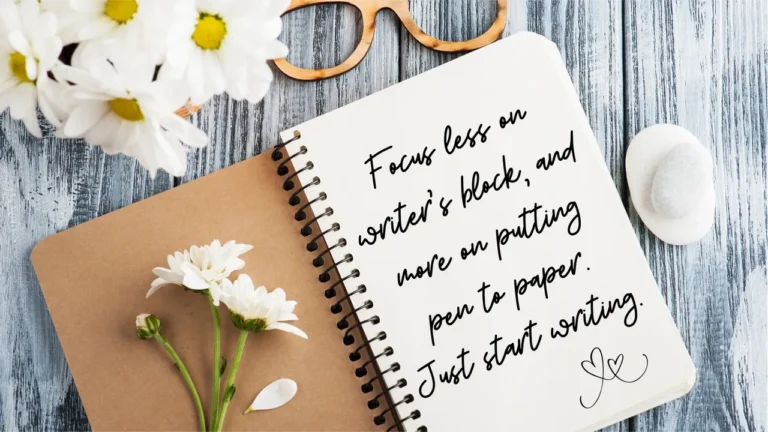 Focus less on
writer's block, and
more on putting
pen to paper.
Just start writing.